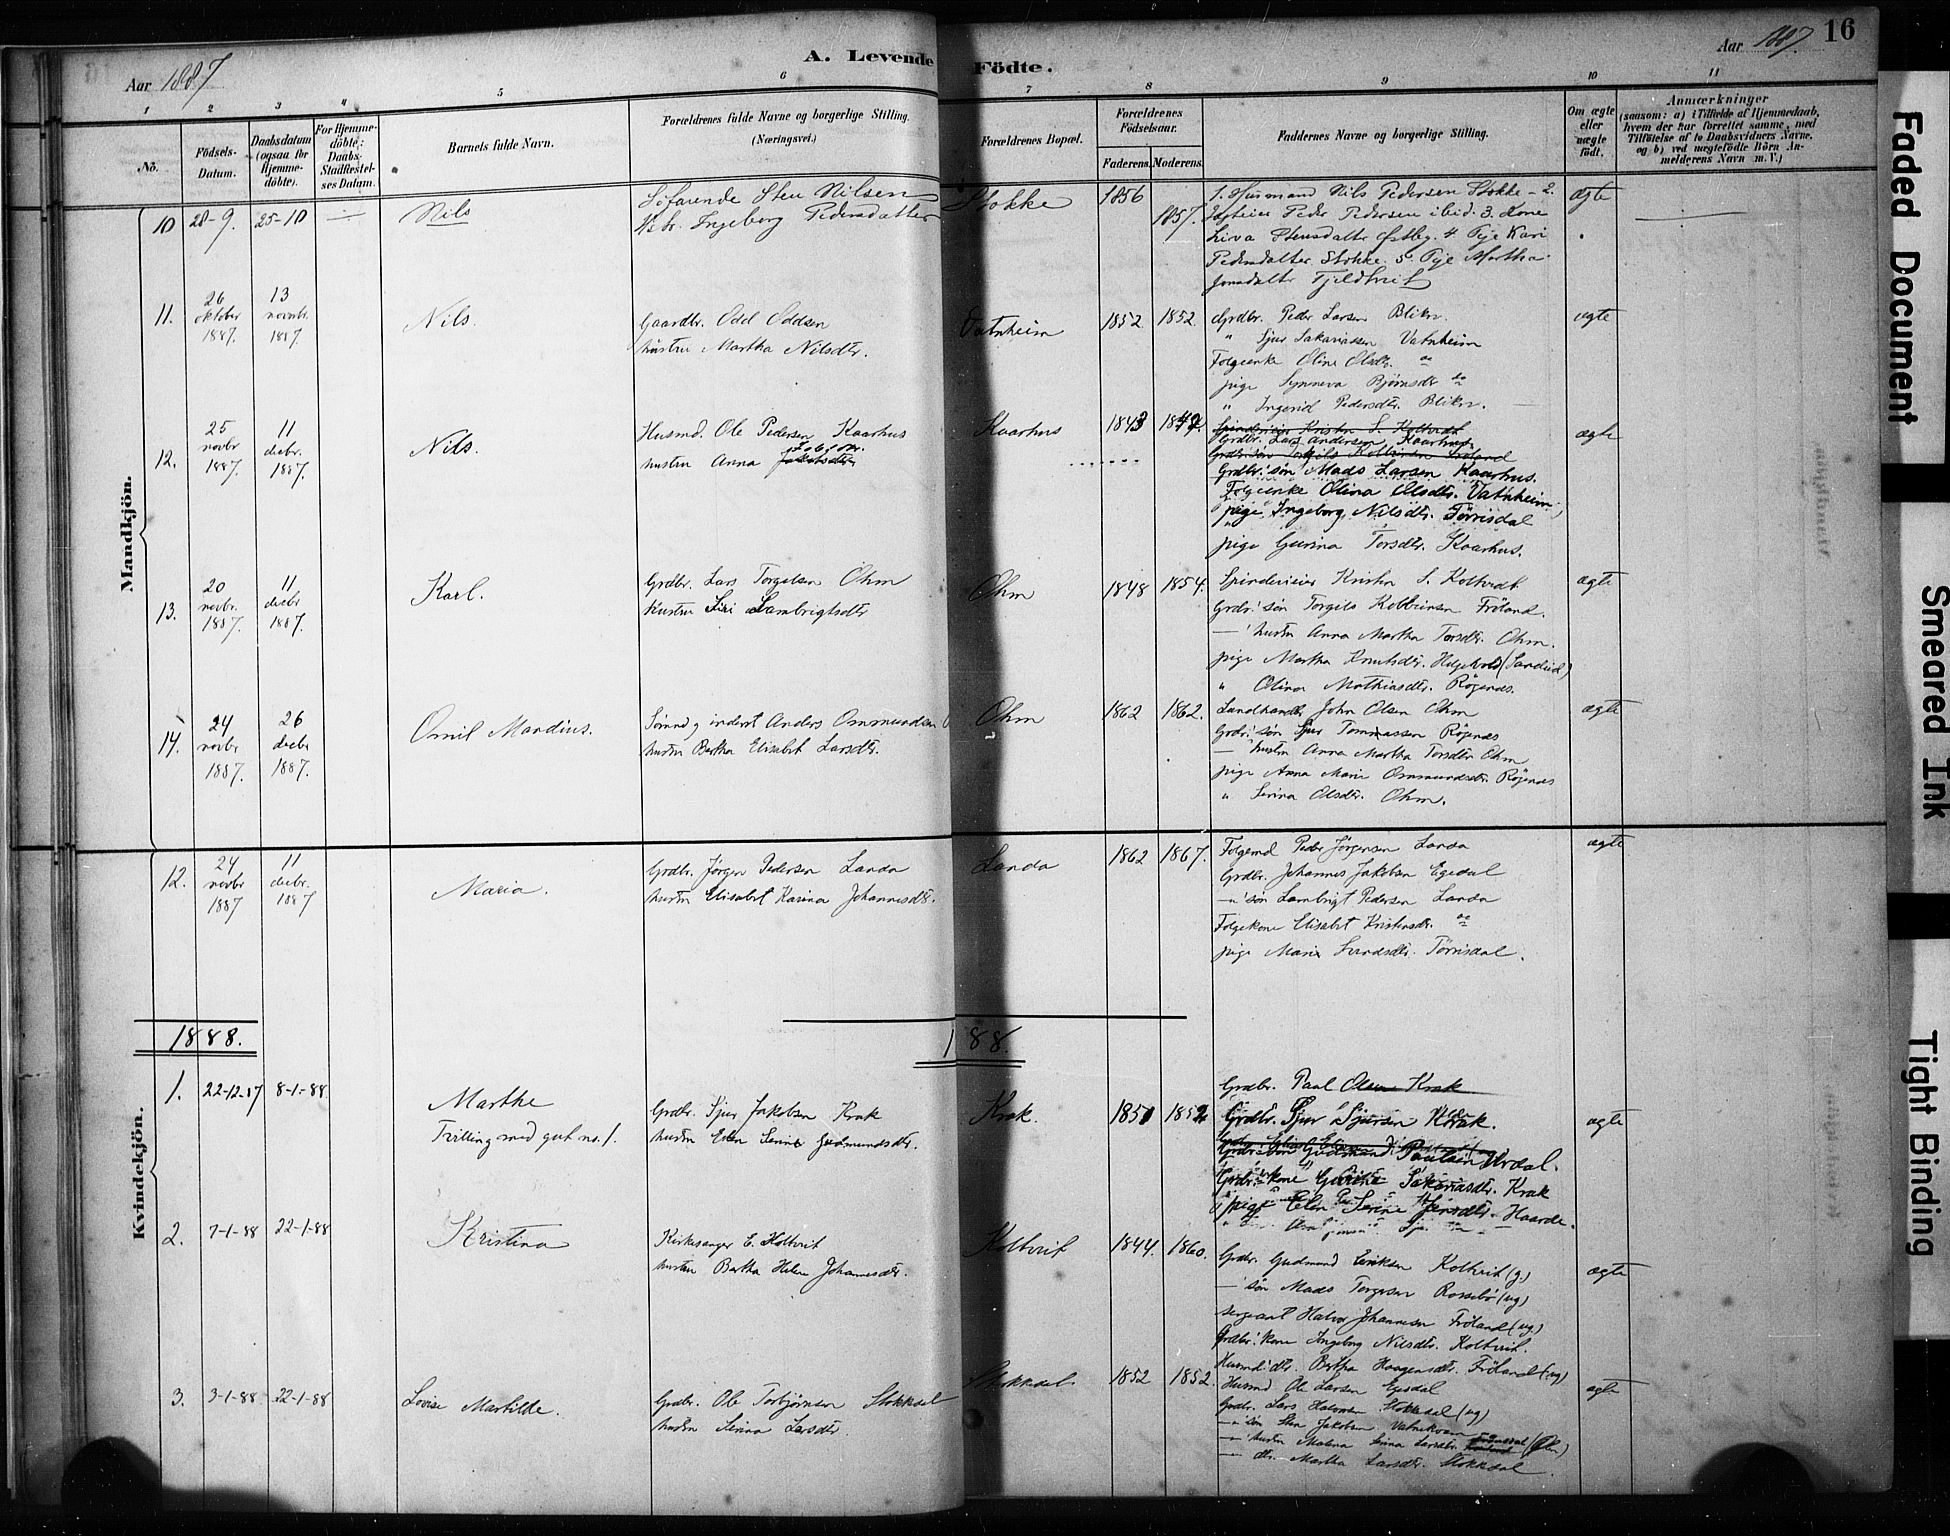 Aar 1887
A. Levende Födte.
Aar 1887. 16
1 2 3 4 5 6 7 8 9 10 11
No.
Födsels-Datum.
Daabsdatum (ogsaa for Hjemme-döbte).
For Hjemme-döbte; Daabs-Stadfæstel-ses Datum.
Barnets fulde Navn.
Forældrenes fulde Navne og borgerlige Stilling.
(Næringsvei.)
Forældrenes Bopæl.
Forældrenes Födselsaar.
Faderens. Moderens.
Faddernes Navne og borgerlige Stilling.
Om ægte eller uægte födt.
Anmærkninger
(saasom: a) i Tilfælde af Hjemmedaab,
hvem der har forrettet samme, med
Tilföielse af to Daabsvidners Navne.
og b) ved uægtefödte Börn An-
melderens Navn m. V.)
Mandkjön.
10 28-9. 25-10 — Nils
Söfarende Sten Nilsen
H. Ingeborg Pedersdatter
Stokke 1856 1857.
1. Husmand Nils Pedersen Stokke - 2.
Peder Pedersen ibid. 3. Kone
Stensdatter Østbø. 4 Pige Kari
Pedersdatter Stokke. 5. Pige Martha
Jonsdatter Fjeldtveit
ægte
11. 26 oktober 1887. 13 novbr. 1887.
Nils.
Gaardbr. Odd Oddsen
hustru Martha Nilsdtr.
Vatnheim 1852 1852.
Grdbr. Peder Larsen Blikn.
" Sjur Sakariassen Vatnheim
Folgeenke Oline Olsdtr. do
pige Synneva Bjørnsdtr do
" Ingerid Pedersdtr. Blikn.
ægte
12. 25 novbr 1887. 11 decbr. 1887.
Nils.
Husmd. Ole Pedersen Kaarhus
hustru Anna
Kaarhus 1843 1847.
Spinderieier Kristen S. Koltveit
Grdbr. Lars Andersen Kaarhus
Grdbr. søn Torgils Kolbeinsen Fröland
Grdbr. søn Mads Larsen Kaarhus.
Folgeenke Olina Olsdtr. Vatnheim,
pige Ingeborg Nilsdtr. Törrisdal
pige Gurina Torsdtr. Kaarhus.
ægte
13. 20 novbr. 1887. 11 decbr 1887.
Karl.
Grdbr. Lars Torgelsen Ohm
hustru Siri Lambrigtsdtr
Ohm 1848 1854.
Spinderieier Kristen S. Koltveit
Grdbr. søn Torgils Kolbeinsen Fröland.
— hustru Anna Martha Torsdtr. Ohm.
pige Martha Knutsdtr. Helgevold (Sandeid)
" Olina Mathiasdtr. Rögenes.
ægte
14. 24 novbr 1887. 26 decbr 1887.
Omil Mandius.
Sømnd og inderst Anders Ommundsen
hustru Bertha Elisabet Larsdtr.
Ohm 1862 1862.
Landhandler John Olsen Ohm
Grdbr. søn Sjur Tommassen Rögenes
— hustru Anna Martha Torsdtr Ohm
pige Anna Marie Ommundsdtr. Rögenes
" Serina Olsdtr. Ohm.
ægte
Kvindekjön.
12. 24 novbr 1887 11 decbr. 1887
Maria.
Grdbr. Jørgen Pedersen Landa
hustru Elisabet Karina Johannesdtr.
Landa 1862 1867.
Folgemd Peder Jörgensen Landa
Grdbr. Johannes Jakobsen Egedal
—"— søn Lambrigt Pedersen Landa
Folgekone Elisabet Kristensdtr. do
pige Maria Svendsdtr. Törrisdal.
ægte
1888. 188
1. 22-12-87 8-1-88
Marthe
Tvilling med gut no. 1.
Grdbr. Sjur Jakobsen Krak
hustru Elen Serine Gudmundsdtr.
Krak. 1851 1852
Grdbr. Paul Olsen Krak
Grdbr. Sjur Sjursen Krak.
Grdbr. søn Gudmund Paulsen Urdal.
Grdbr. kone Gurina Sakariasdtr. Krak
pige Elen Serine Jensdtr. Haarde.
ægte
2. 7-1-88 22-1-88
Kristina
Kirkesanger E. Koltveit
hustru Bertha Helene Johannesdtr.
Koltveit 1844. 1860.
Grdbr. Gudmund Eriksen Koltveit (g.)
—' søn Mads Torgersen Rossebö (ug)
sergeant Halvor Johannesen Fröland (ug.)
Grdbr. kone Ingeborg Nilsdtr. Koltveit.
Husmd. dtr. Bertha Haagensdtr. Fröland (ug)
ægte
3. 3-1-88 22-1-88
Lovise Martilde.
Grdbr. Ole Torbjørnsen Stokkedal
hustru Serina Larsdtr.
Stokkedal 1852 1852.
Husmd Ole Larsen Egedal
Grdbr. Lars Stokkedal (ug)
—"— søn Sten Jakobsen Vatnekvam
—"— hustru Malena Serina Larsdtr.
— dtr. Martha Larsdtr. Stokkedal.
ægte
Faded Document
Smeared Ink
Tight Binding